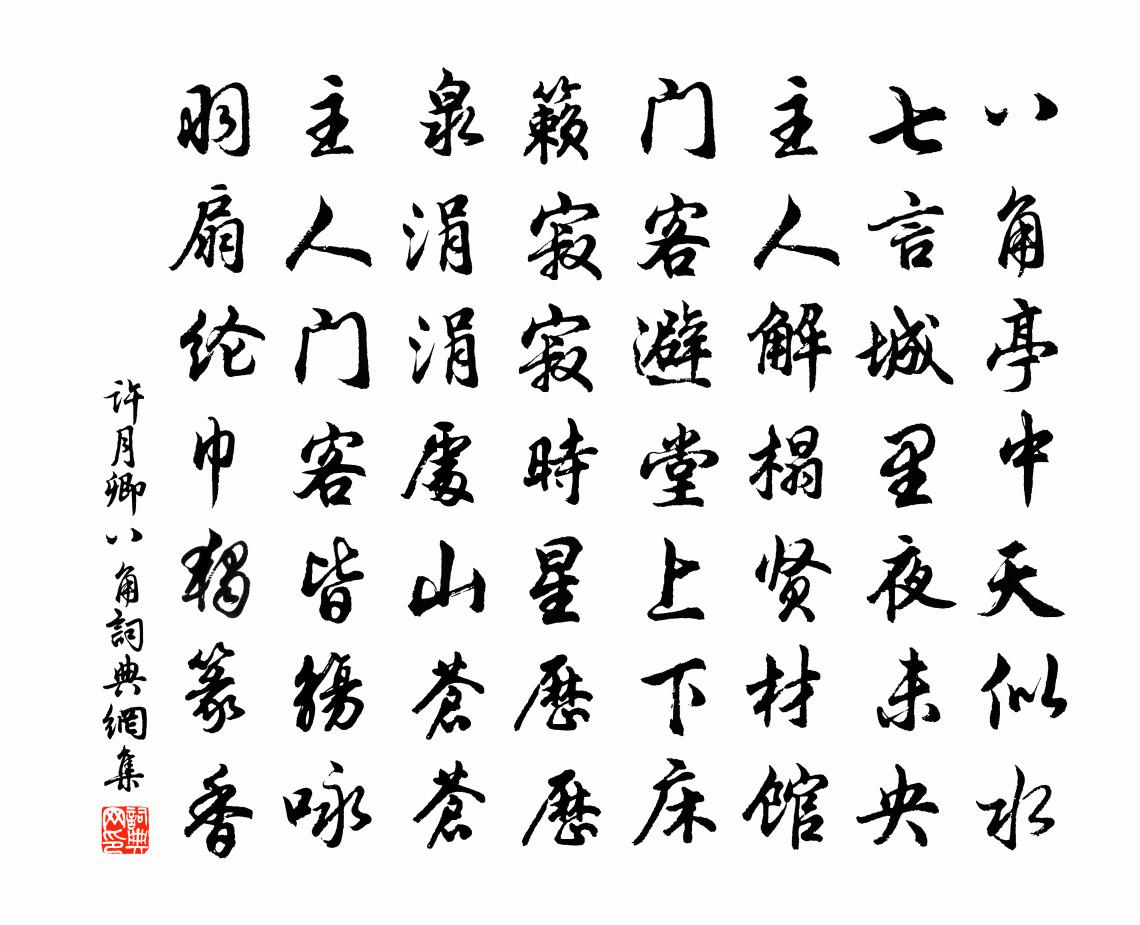 八角亭中天似水
七言城里夜未央
主人解榻贤材馆
门客避堂上下床
籁寂寂時星歷歷
泉涓涓處山蒼蒼
主人门客皆觴咏
羽扇纶巾獨篆香
许月卿八角詞典網集
詞典网印